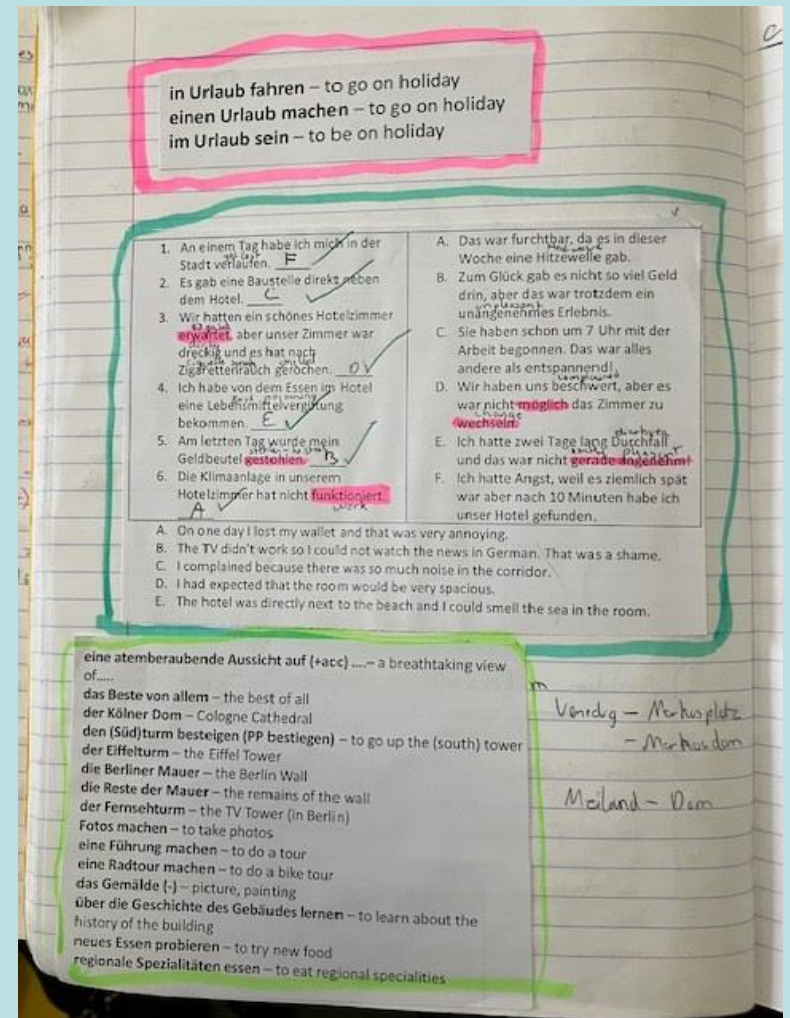 in Urlaub fahren – to go on holiday
einen Urlaub machen – to go on holiday
im Urlaub sein – to be on holiday
1. An einem Tag habe ich mich in der
Stadt verlaufen. F
2. Es gab eine Baustelle direkt neben
dem Hotel. C
3. Wir hatten ein schönes Hotelzimmer
erwartet, aber unser Zimmer war
dreckig und es hat nach
Zigarettenrauch gerochen. D
4. Ich habe von dem Essen im Hotel
eine Lebensmittelvergiftung
bekommen. E
5. Am letzten Tag wurde mein
Geldbeutel gestohlen. B
6. Die Klimaanlage in unserem
Hotelzimmer hat nicht funktioniert.
work
A
A. Das war furchtbar, da es in dieser
Woche eine Hitzewelle gab.
B. Zum Glück gab es nicht so viel Geld
drin, aber das war trotzdem ein
unpleasant
unangenehmes Erlebnis.
C. Sie haben schon um 7 Uhr mit der
Arbeit begonnen. Das war alles
andere als entspannend!
complained
D. Wir haben uns beschwert, aber es
war nicht möglich das Zimmer zu
change
wechseln.
E. Ich hatte zwei Tage lang Durchfall
pleasant
und das war nicht gerade angenehm!
F. Ich hatte Angst, weil es ziemlich spät
war aber nach 10 Minuten habe ich
unser Hotel gefunden.
A. On one day I lost my wallet and that was very annoying.
B. The TV didn't work so I could not watch the news in German. That was a shame.
C. I complained because there was so much noise in the corridor.
D. I had expected that the room would be very spacious.
E. The hotel was directly next to the beach and I could smell the sea in the room.
eine atemberaubende Aussicht auf (+acc) ....– a breathtaking view
of.....
das Beste von allem – the best of all
der Kölner Dom – Cologne Cathedral
den (Süd)turm besteigen (PP bestiegen) – to go up the (south) tower
der Eiffelturm – the Eiffel Tower
die Berliner Mauer – the Berlin Wall
die Reste der Mauer – the remains of the wall
der Fernsehturm – the TV Tower (in Berlin)
Fotos machen – to take photos
eine Führung machen – to do a tour
eine Radtour machen – to do a bike tour
das Gemälde (-) – picture, painting
über die Geschichte des Gebäudes lernen – to learn about the
history of the building
neues Essen probieren – to try new food
regionale Spezialitäten essen – to eat regional specialities
m
Venedig – Markusplatz
– Markusdom
Meiland – Dom